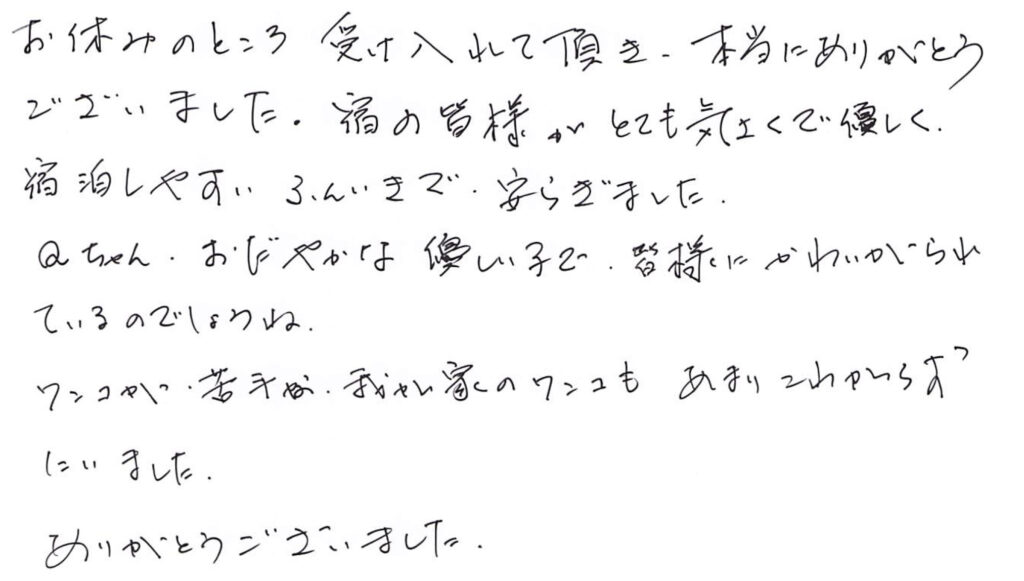 お休みのところ 受け入れて頂き、本当にありがとう
ございました。宿の皆様がとても気さくで優しく、
宿泊しやすい ふんいきで、安らぎました。
Qちゃん、おだやかな優しい子で、皆様にかわいがられ
ているのでしょうね。
ワンコが、苦手な、我が家のワンコも あまりこわがらず
にいました。
ありがとうございました。